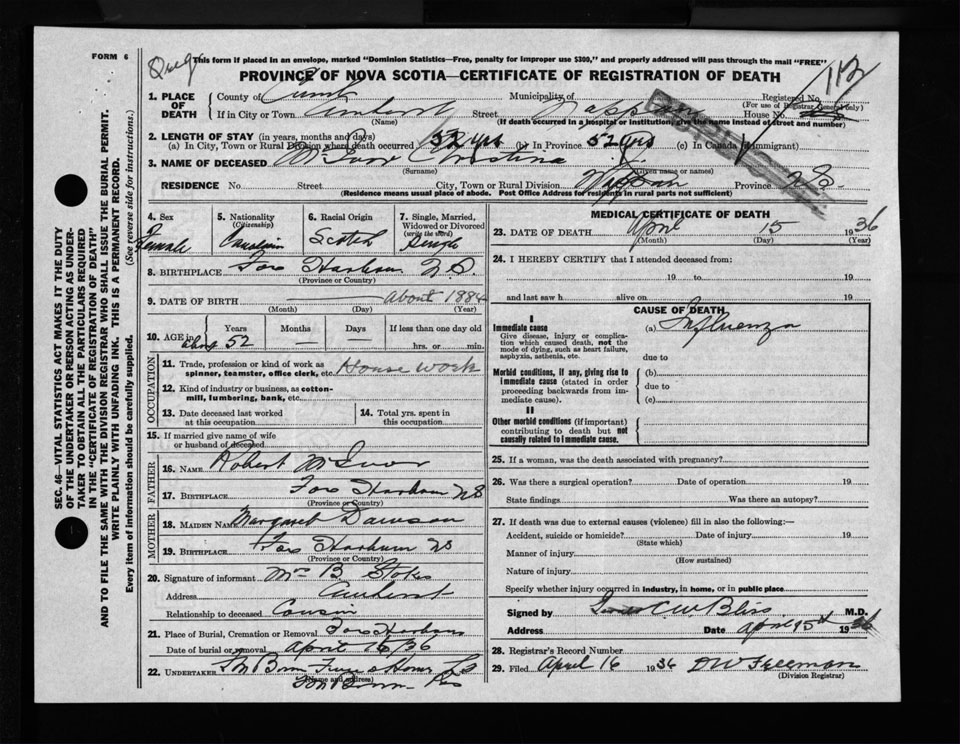 FORM 6
This form if placed in an envelope, marked "Dominion Statistics—Free, penalty for improper use $300," and properly addressed will pass through the mail "FREE"
PROVINCE OF NOVA SCOTIA—CERTIFICATE OF REGISTRATION OF DEATH
112
1. PLACE OF DEATH
County of Cumb Municipality of Registered No.
(For use of Registrar General only)
If in City or Town Amherst Street House No.
(Name) (If death occurred in a hospital or institution, give the name instead of street and number)
2. LENGTH OF STAY (in years, months and days)
(a) In City, Town or Rural Division where death occurred 52 yrs (b) In Province 52 yrs (c) In Canada (if immigrant)
3. NAME OF DECEASED McIvor Christina
(Surname) (Given name or names)
RESIDENCE No. Street City, Town or Rural Division Nappan Province N.S.
(Residence means usual place of abode. Post Office Address for residents in rural parts not sufficient)
4. Sex Female
5. Nationality (Citizenship) Canadian
6. Racial Origin Scotch
7. Single, Married, Widowed or Divorced (write the word) Single
8. BIRTHPLACE Fox Harbour N.S.
(Province or Country)
9. DATE OF BIRTH About 1884
(Month) (Day) (Year)
10. AGE in Years Months Days If less than one day old
abt 52 — — hrs. or min.
OCCUPATION
11. Trade, profession or kind of work as spinner, teamster, office clerk, etc. House work
12. Kind of industry or business, as cotton-mill, lumbering, bank, etc.
13. Date deceased last worked at this occupation
14. Total yrs. spent in this occupation
15. If married give name of wife or husband of deceased
FATHER
16. NAME Robert McIvor
17. BIRTHPLACE Fox Harbour NS
(Province or Country)
MOTHER
18. MAIDEN NAME Margaret Dawson
19. BIRTHPLACE Fox Harbour NS
(Province or Country)
20. Signature of informant Mrs B. Stokes
Address Amherst
Relationship to deceased Cousin
21. Place of Burial, Cremation or Removal Fox Harbour
Date of burial or removal April 16/36
22. UNDERTAKER
(Name and address)
MEDICAL CERTIFICATE OF DEATH
23. DATE OF DEATH April 15 1936
(Month) (Day) (Year)
24. I HEREBY CERTIFY that I attended deceased from:
19 to 19
and last saw h alive on 19
CAUSE OF DEATH
I
Immediate cause (a) Influenza
Give disease, injury or complication which caused death, not the mode of dying, such as heart failure, asphyxia, asthenia, etc.
due to
Morbid conditions, if any, giving rise to immediate cause (stated in order proceeding backwards from immediate cause).
(b)
due to
(c)
II
Other morbid conditions (if important) contributing to death but not causally related to immediate cause.
25. If a woman, was the death associated with pregnancy?
26. Was there a surgical operation? Date of operation 19
State findings Was there an autopsy?
27. If death was due to external causes (violence) fill in also the following:—
Accident, suicide or homicide? Date of injury 19
(State which)
Manner of injury
(How sustained)
Nature of injury
Specify whether injury occurred in industry, in home, or in public place
Signed by C W Bliss M.D.
Address Date April 15th 1936
28. Registrar's Record Number
29. Filed April 16 1936 D W Freeman
(Division Registrar)
SEC. 46—VITAL STATISTICS ACT MAKES IT THE DUTY
OF THE UNDERTAKER OR PERSON ACTING AS UNDER-
TAKER TO OBTAIN ALL THE PARTICULARS REQUIRED
IN THE "CERTIFICATE OF REGISTRATION OF DEATH"
AND TO FILE THE SAME WITH THE DIVISION REGISTRAR WHO SHALL ISSUE THE BURIAL PERMIT.
WRITE PLAINLY WITH UNFADING INK. THIS IS A PERMANENT RECORD.
Every item of information should be carefully supplied. (See reverse side for instructions.)